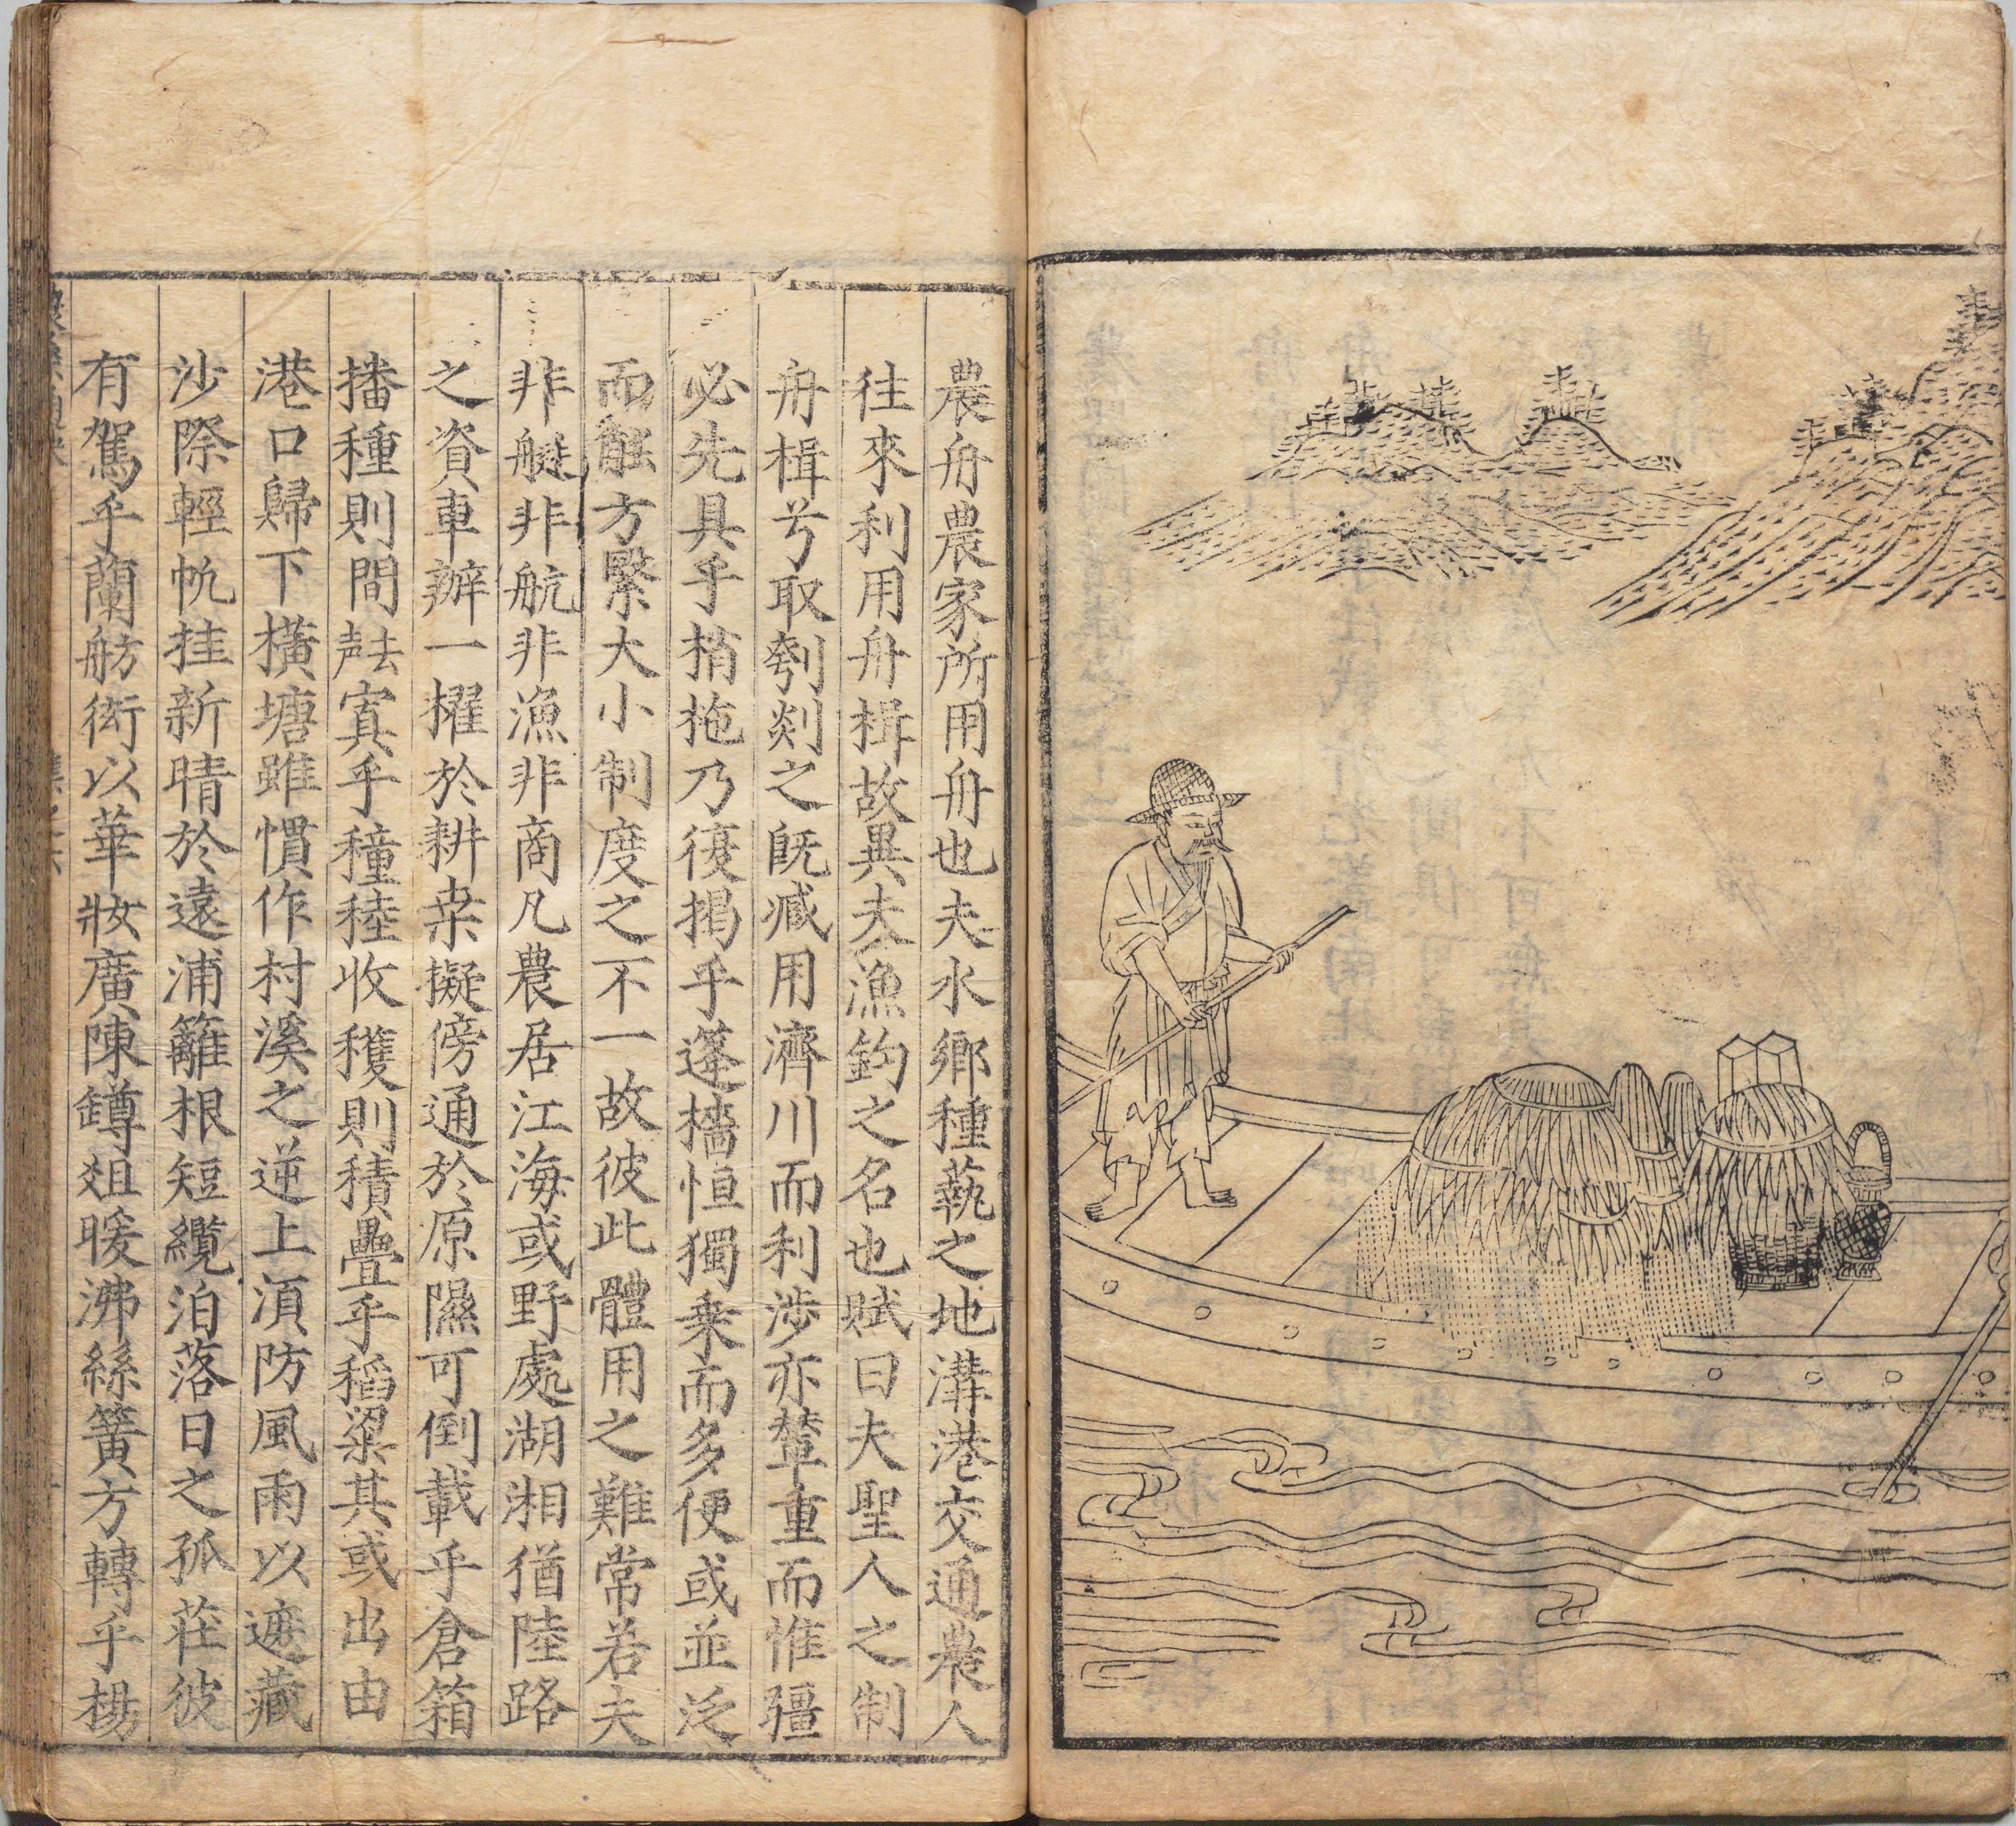 農舟農家所用舟也夫水鄉種蓺之地溝港交通農人
往來利用舟楫故異夫漁釣之名也賦曰夫聖人之制
舟楫兮取刳剡之既臧用濟川而利涉亦輦重而惟彊
必先具乎梢拖乃復揭乎篷檣恒獨乗而多便或並泛
而能方繄大小制度之不一故彼此體用之難常若夫
非艇非航非漁非商凡農居江海或野處湖湘猶陸路
之資車辦一櫂於耕桒擬傍通於原隰可倒載乎倉箱
播種則間寘乎穜稑收穫則積疊乎稻粱其或出由
港口歸下橫塘雖慣作村溪之逆上湏防風雨以遮藏
沙際輕帆挂新晴於遠浦籬根短纜泊落日之孤莊彼
有駕乎蘭舫衒以華妝廣陳罇俎暖沸絲簧方轉乎楊